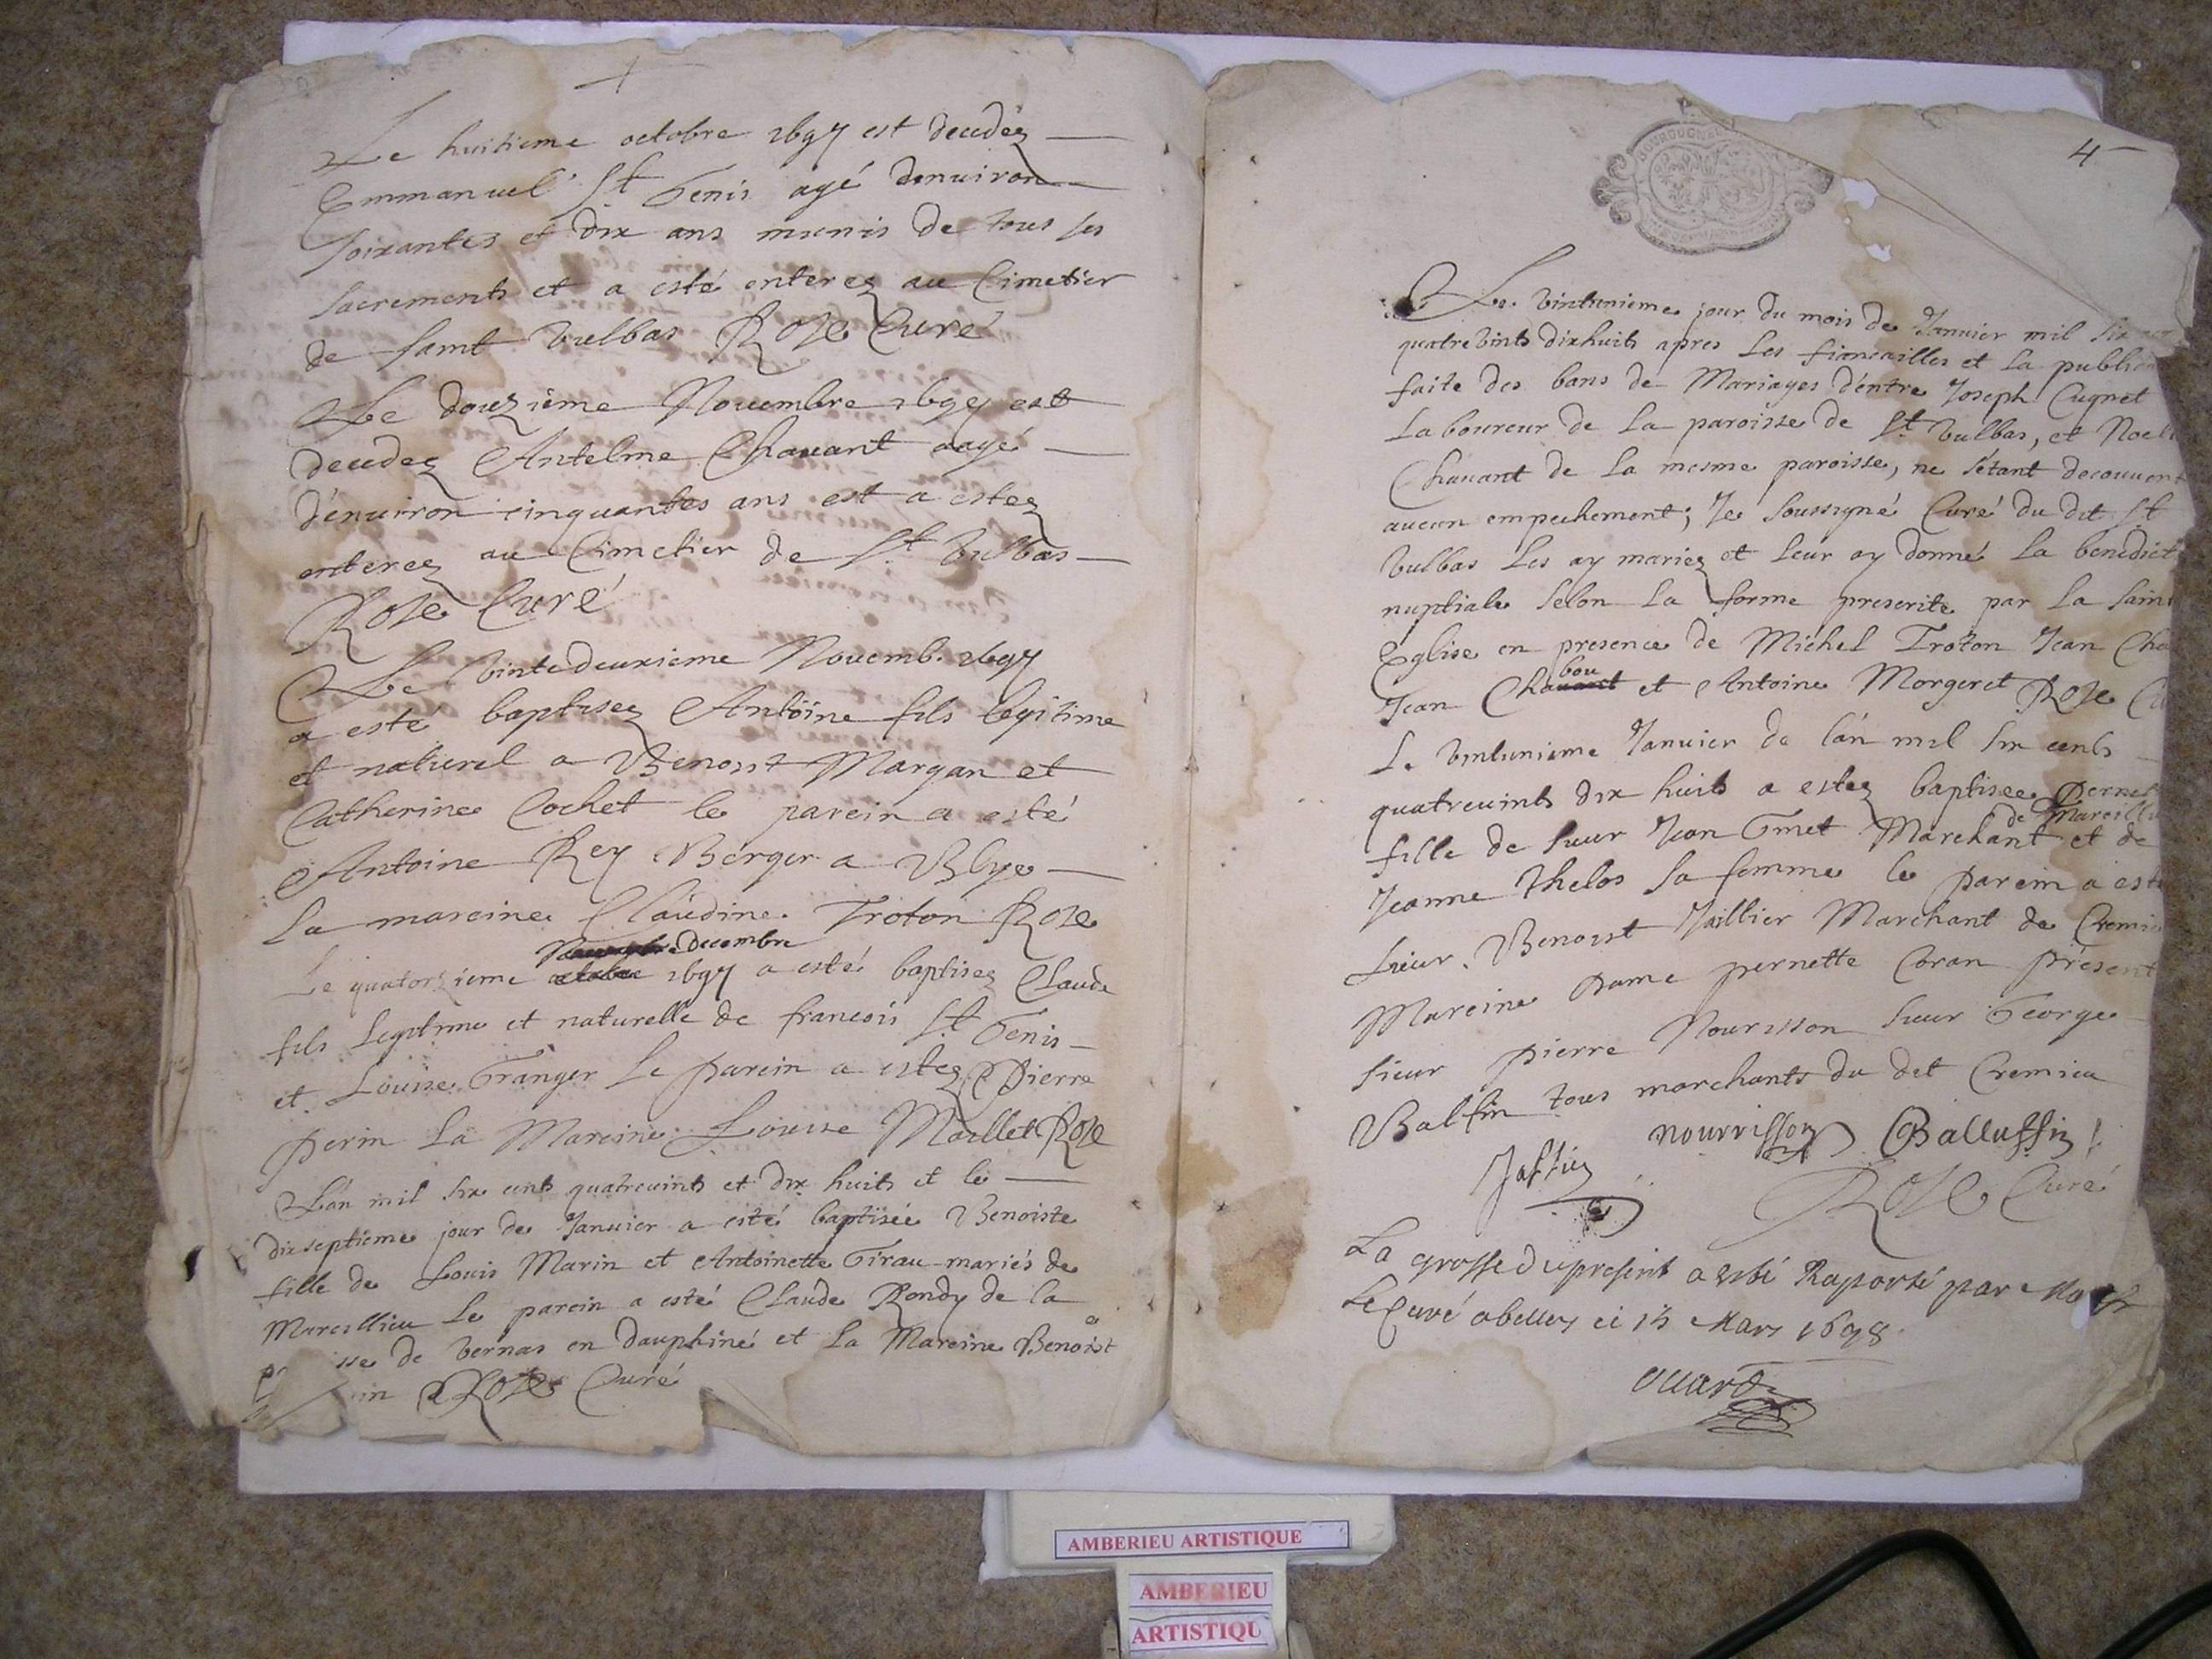 Le huitieme octobre 1697 est decedez
Emmanuel St Genis agé denuiron
soixantes et dix ans munis de tous ses
sacrements et a esté enterez au Cimetier
de saint Vulbas Roze Curé
Le douzième Nouembre 1697 est
decedez Antelme Chauant aagé
d'énuiron cinquantes ans est a estez
enterez au Cimetier de St Vulbas
Roze Curé
Le Vintedeuxieme Nouemb. 1697
a esté baptisez Antoine fils legitime
et naturel a Benoist Margan et
Catherine Cochet le parein a esté
Antoine Rey Berger a Blye
La mareine Claudine Troton Roze
decembre
Le quatorzieme octobre 1697 a esté baptisez Claude
fils Legitime et naturelle de francois St Genis
et Louise Granger Le parein a estez Pierre
perin La Mareine Louise Maillet Roze
L'an mil six cents quatreuints et dix huits et le
dixseptieme jour de Januier a esté baptisée Benoiste
fille de Louis Marin et Antoinette Girau mariés de
Marcillieu Le parein a esté Claude Rondy de la
sse de Vernas en dauphiné et La Mareine Benoist
in Roze Curé
4
BOURGOGNE
Le Vintunieme jour du mois de Januier mil six
quatre Vints dixhuits apres Les fiansailles et La public
faite des bans de Mariages d'entre Joseph Cugnet
Laboureur de La paroisse de St Vulbas, et Noel
Chauant de La mesme paroisse, ne s'étant decouuert
aucun empechement; Je soussigné Curé du dit St
Vulbas Les ay mariez et Leur ay donné La benedict
nuptiale selon La forme prescrite par La Saint
Eglise en presence de Michel Troton Jean Cha
bou
Jean Chauant et Antoine Morgeret Roze Cu
Le Vintunieme Januier de l'an mil six cents
quatreuints dix huits a estez baptisee Pernet
de Marcilli
fille de sieur Jean Gmet Marchant et de
Jeanne Thelos sa femme le parein a est
sieur Benoist Jaillier Marchant de Cremi
Mareine dame pernette Coran present
sieur pierre Nourisson sieur George
Balfin tous marchants du dit Cremieu
nourrisson Balluffin
Roze Curé
La grosse du present a esté Raporté par
Le Curé abelley ce 15 Mars 1698
AMBERIEU ARTISTIQUE
AMBERIEU
ARTISTIQU